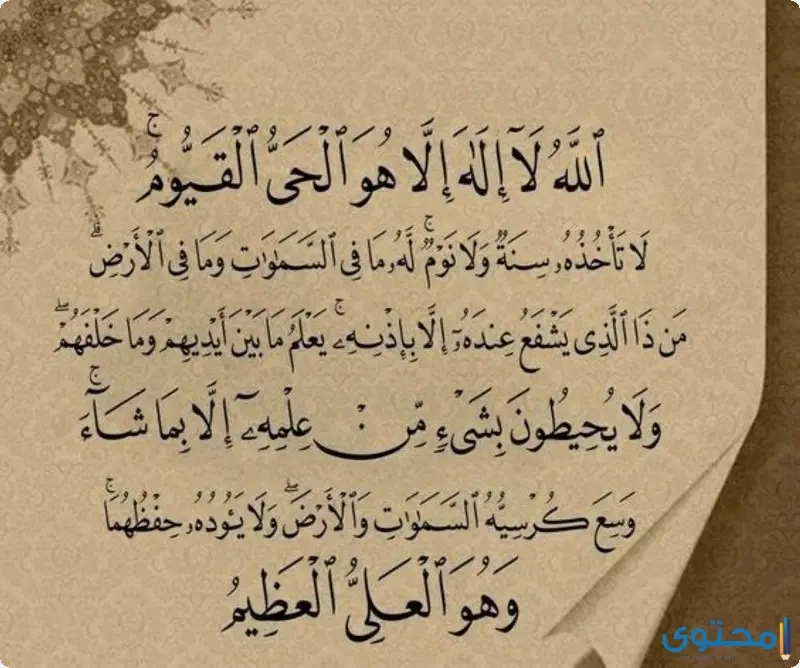 ٱللَّهُ لَآ إِلَٰهَ إِلَّا هُوَ ٱلْحَىُّ ٱلْقَيُّومُ ۚ
لَا تَأْخُذُهُۥ سِنَةٌ وَلَا نَوْمٌ ۚ لَّهُۥ مَا فِى ٱلسَّمَٰوَٰتِ وَمَا فِى ٱلْأَرْضِ ۗ
مَن ذَا ٱلَّذِى يَشْفَعُ عِندَهُۥٓ إِلَّا بِإِذْنِهِۦ ۚ يَعْلَمُ مَا بَيْنَ أَيْدِيهِمْ وَمَا خَلْفَهُمْ ۖ
وَلَا يُحِيطُونَ بِشَىْءٍ مِّنْ عِلْمِهِۦٓ إِلَّا بِمَا شَآءَ ۚ
وَسِعَ كُرْسِيُّهُ ٱلسَّمَٰوَٰتِ وَٱلْأَرْضَ ۖ وَلَا يَـُٔودُهُۥ حِفْظُهُمَا ۚ
وَهُوَ ٱلْعَلِىُّ ٱلْعَظِيمُ
محتوى